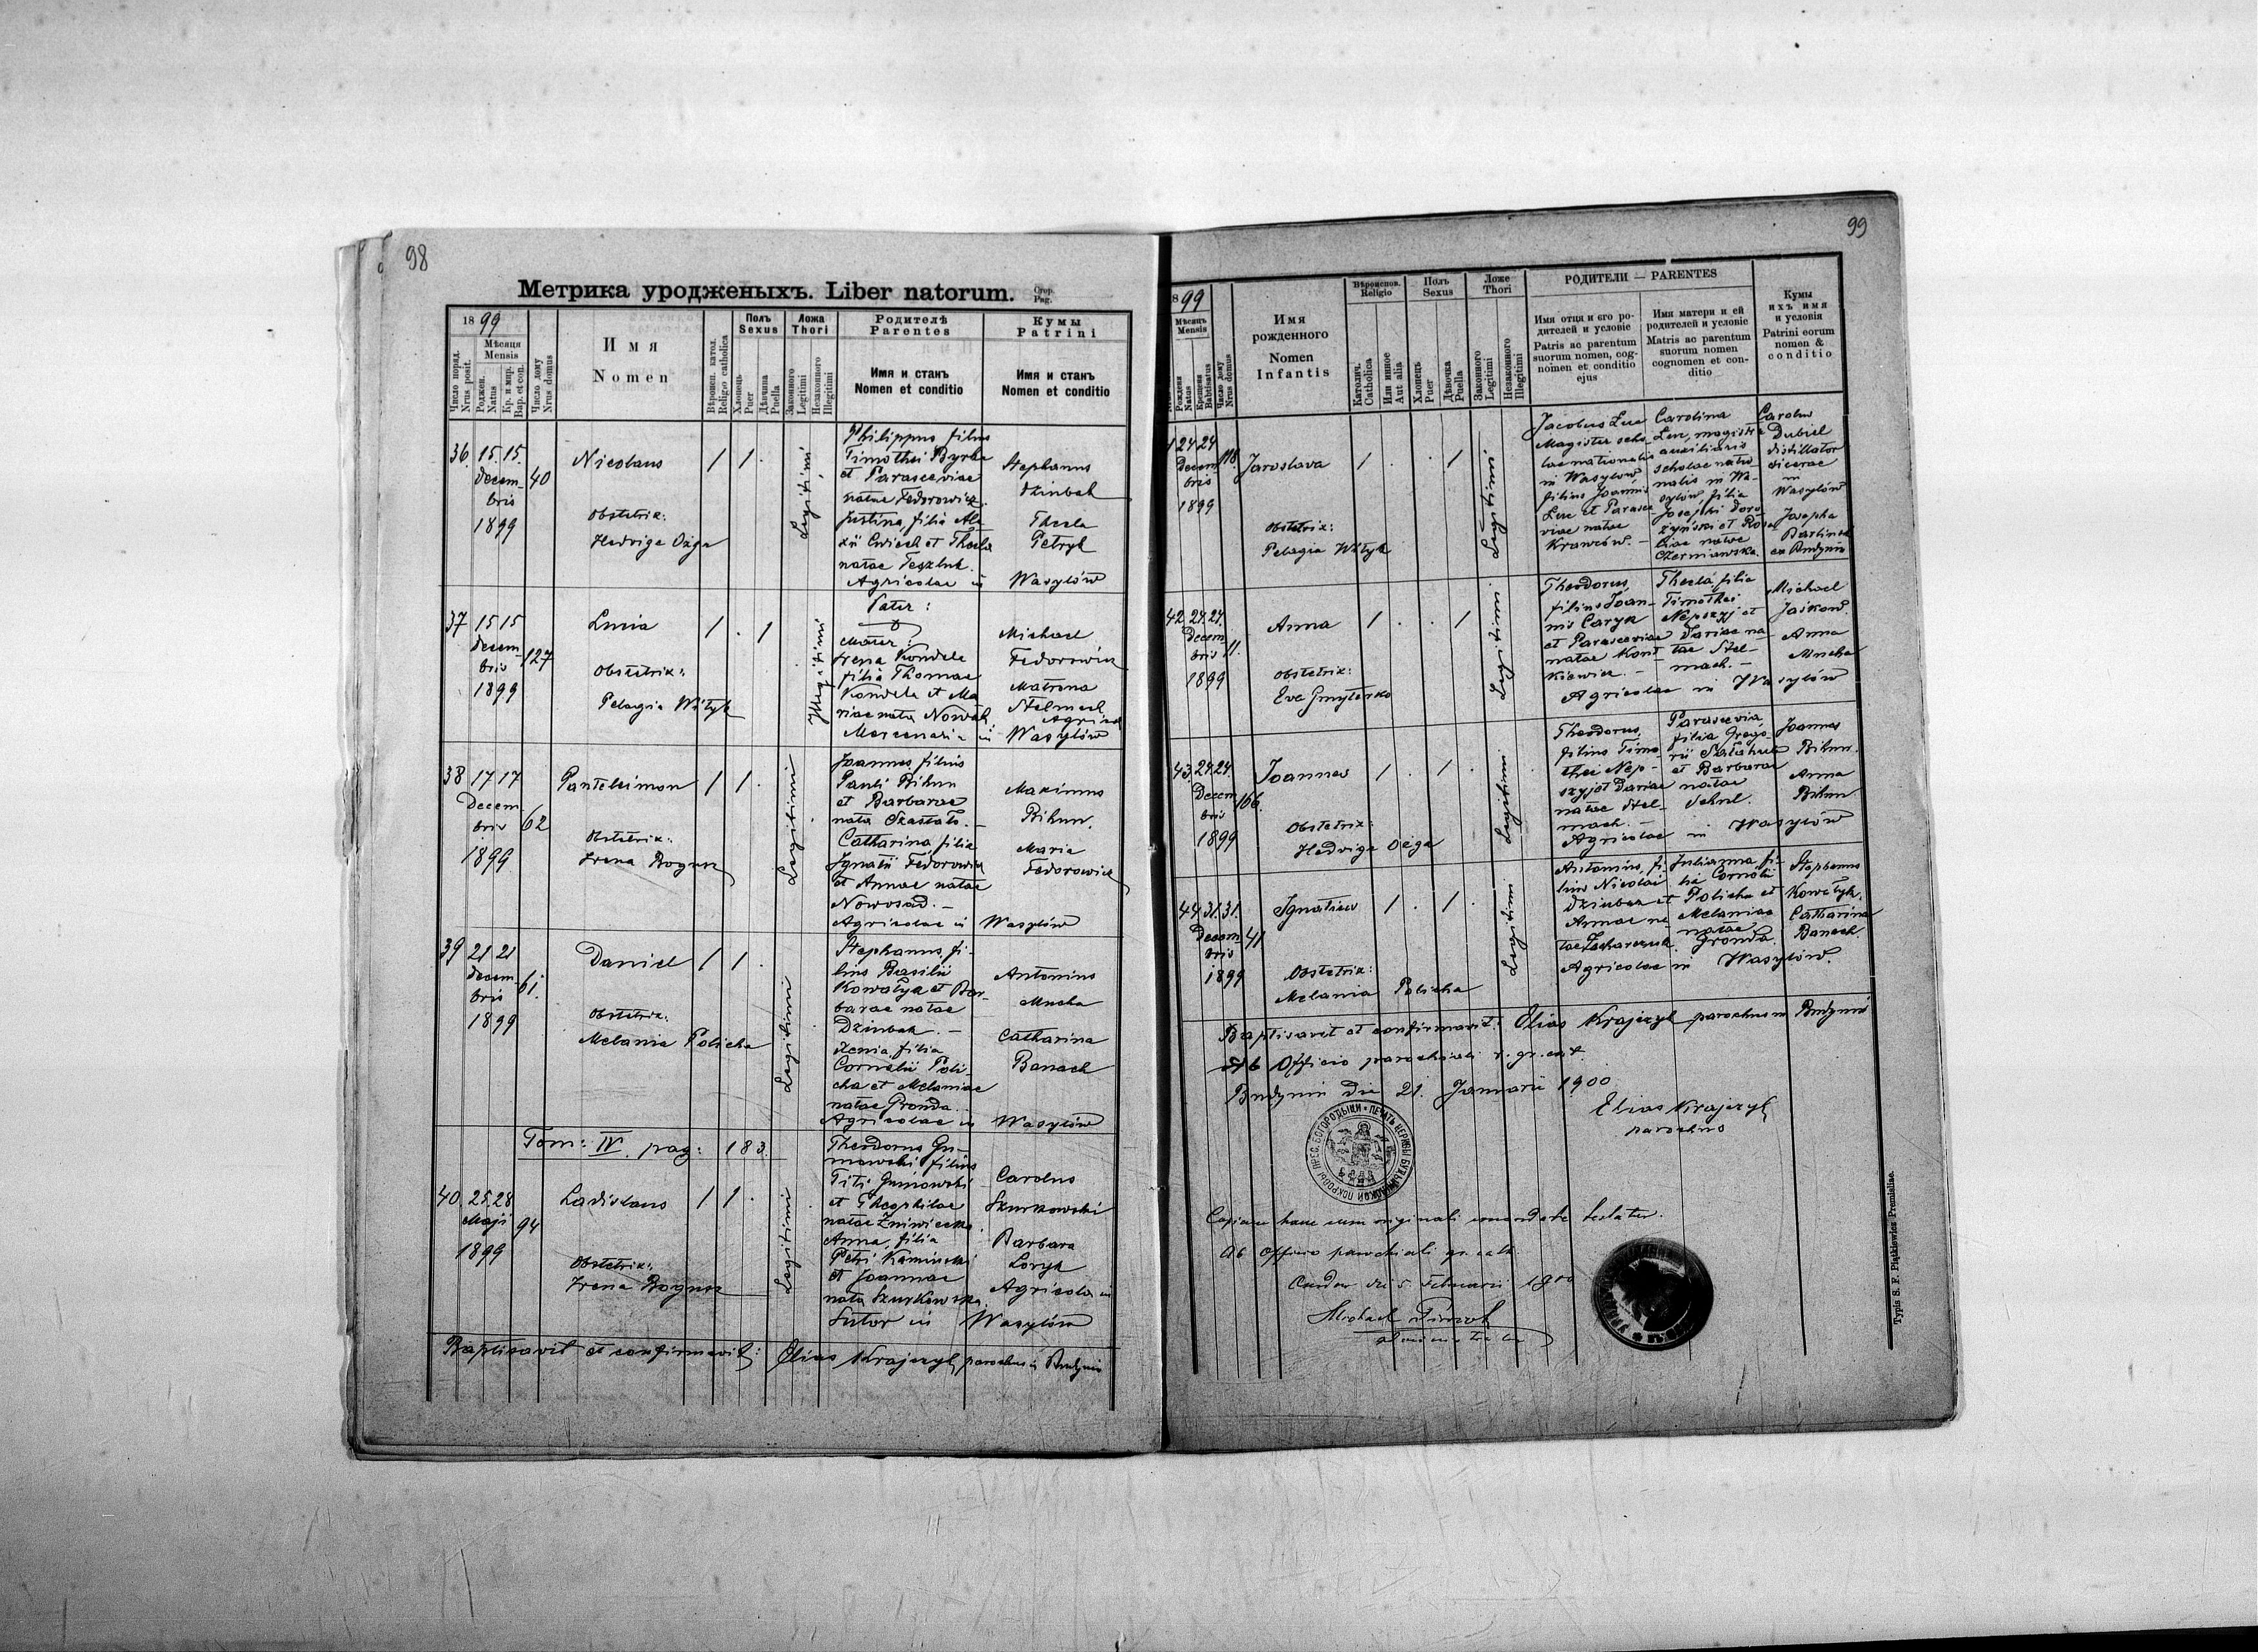 98
Метрика уродженыхъ. Liber natorum.
Стор.
Pag.
18 99
Мѣсяця
Mensis
Число поряд.
Nrus posit.
Рожден.
Natus
Кр. и мир.
Bap. et con.
Число дому
Nrus domus
Имя
Nomen
Вѣроисп. катол.
Religio catholica
Полъ
Sexus
Хлопець
Puer
Дѣвчина
Puella
Ложа
Thori
Законного
Legitimi
Незаконного
Illegitimi
Родителѣ
Parentes
Имя и станъ
Nomen et conditio
Кумы
Patrini
Имя и станъ
Nomen et conditio
36. 15. 15.
Decem-
bris
1899
40
Nicolaus
Obstetrix:
Hedviga Ożga
1 1 .
Legitimi
Philippus filius
Timothei Byrka
et Parasceviae
natae Fedorowicz.
Justina, filia Ale-
xii Cwiech et Thecla
natae Feszluk.
Agricolae in
Stephanus
Dziubak
Thecla
Petryk
Wasylów
37 15 15
Decem-
bris
1899
127
Lucia
Obstetrix:
Pelagia Wityk
1 . 1
Illegitimi
Pater:
Mater:
Irena Kondela
filia Thomae
Kondela et Ma
riae nata Nowak.
Mercenaria in
Michael
Fedorowicz
Matrona
Stelmach
Agricol
Wasylów
38 17 17
Decem
bris
1899
62
Panteleimon
Obstetrix:
Irena Bogusz
1 1 .
Legitimi
Joannes filius
Pauli Bihun
et Barbarae
nata Szastało. –
Catharina, filia
Ignatii Fedorowicz
et Annae natae
Nowosad. –
Agricolae in
Maximus
Bihun.
Maria
Fedorowicz
Wasylów
39 21 21
Decem-
bris
1899
61.
Daniel
Obstetrix:
Melania Policha
1 1 .
Legitimi
Stephanus, fi-
lius Basilii
Kowałyk et Bar-
barae natae
Dziubak. –
Xenia, filia
Cornelii Poli-
cha et Melaniae
natae Gronda.
Agricolae in
Antonius
Mucha
Catharina
Banach
Wasylów
Tom: IV. pag: 183.
40. 25. 28
Maji
1899
94
Ladislaus
Obstetrix:
Irena Bogusz
1 1 .
Legitimi
Theodorus Gu-
mowski filius
Titi Gumowski
et Theophilae
natae Żniwiecka.
Anna, filia
Petri Kamiński
et Joannae
nata Szurkowska
Sutor in
Carolus
Szurkowski
Barbara
Loryk
Agricola in
Wasylów
Baptisavit et confirmavit: Elias Krajczyk parochus in Budynin
99
1899
Мѣсяць
Mensis
Рождена
Natus
Крещена
Babtisatus
Число дому
Nrus domus
Имя
рожденного
Nomen
Infantis
Вѣроиспов.
Religio
Католич.
Catholica
Или инное
Aut alia
Полъ
Sexus
Хлопець
Puer
Дѣвочка
Puella
Ложе
Thori
Законного
Legitimi
Незаконного
Illegitimi
РОДИТЕЛИ — PARENTES
Имя отця и єго ро-
дителей и условіе
Patris ac parentum
suorum nomen, cog-
nomen et conditio
ejus
Имя матери и єй
родителей и условіє
Matris ac parentum
suorum nomen
cognomen et con-
ditio
Кумы
ихъ имя
и условія
Patrini eorum
nomen &
conditio
1 24 24
Decem
bris
1899
118.
Jaroslava
Obstetrix:
Pelagia Wityk
1 . . 1
Legitimi
Jacobus Luc
Magister scho
lae nationalis
in Wasylów,
filius Joannis
Luc et Parasce
viae natae
Krawców. –
Carolina
Luc, magistra
auxiliaris
scholae natio-
nalis in Wa-
sylów, filia
Josephi Doro-
żyński et Rosa
liae natae
Czerniawska.
Carolus
Dubiel
distillator
sicerae
in
Wasylów
Josepha
ex Budynin
42 24. 24.
Decem
bris
1899
11.
Anna
Obstetrix:
Eva Gmyterko
1 . . 1
Legitimi
Theodorus,
filius Joan-
nis Caryk
et Parasceviae
natae Kont-
kiewicz. –
Thecla, filia
Timothei
Nepszyj et
Dariae na-
tae Stel-
mach. –
Michael
Jaików.
Anna
Mucha
Agricolae in Wasylów
43. 24. 24.
Decem
bris
1899
166.
Joannes
Obstetrix:
Hedviga Ożga
1 . 1 .
Legitimi
Theodorus,
filius Timo-
thei Nep-
szyj et Dariae
natae Stel-
mach. –
Parascevia,
filia Grego-
rii
et Barbarae
natae
Joannes
Bihun.
Anna
Bihun
Agricolae in Wasylów
44 31. 31.
Decem
bris
1899
41
Ignatius
Obstetrix:
Melania Policha
1 . 1 .
Legitimi
Antonius, fi-
lius Nicolai
Dziuba et
Annae na-
tae Zacharczuk
Julianna fi-
lia Cornelii
Policha et
Melaniae
natae
Gronda.
Stephanus
Kowałyk.
Catharina
Banach.
Agricolae in Wasylów.
Baptisavit et confirmavit: Elias Krajczyk parochus in Budynin
Ab Officio parochiali r. gr. cat.
Budynin die 21. Januarii 1900.
Elias Krajczyk
parochus
Copiam hanc cum originali concordare testatur.
Ab Officio parochiali gr. cath.
die 5. Februarii 1900
Michael
administrator
Typis S. F. Piątkiewicz Premisliae.